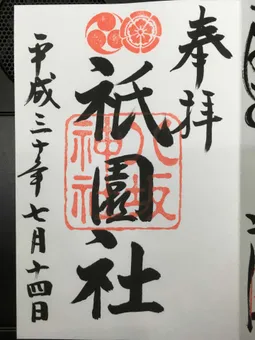 奉拝
祇園社
八坂神社
平成三十年七月十四日